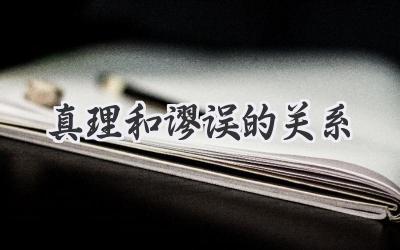 真理和谬误的关系